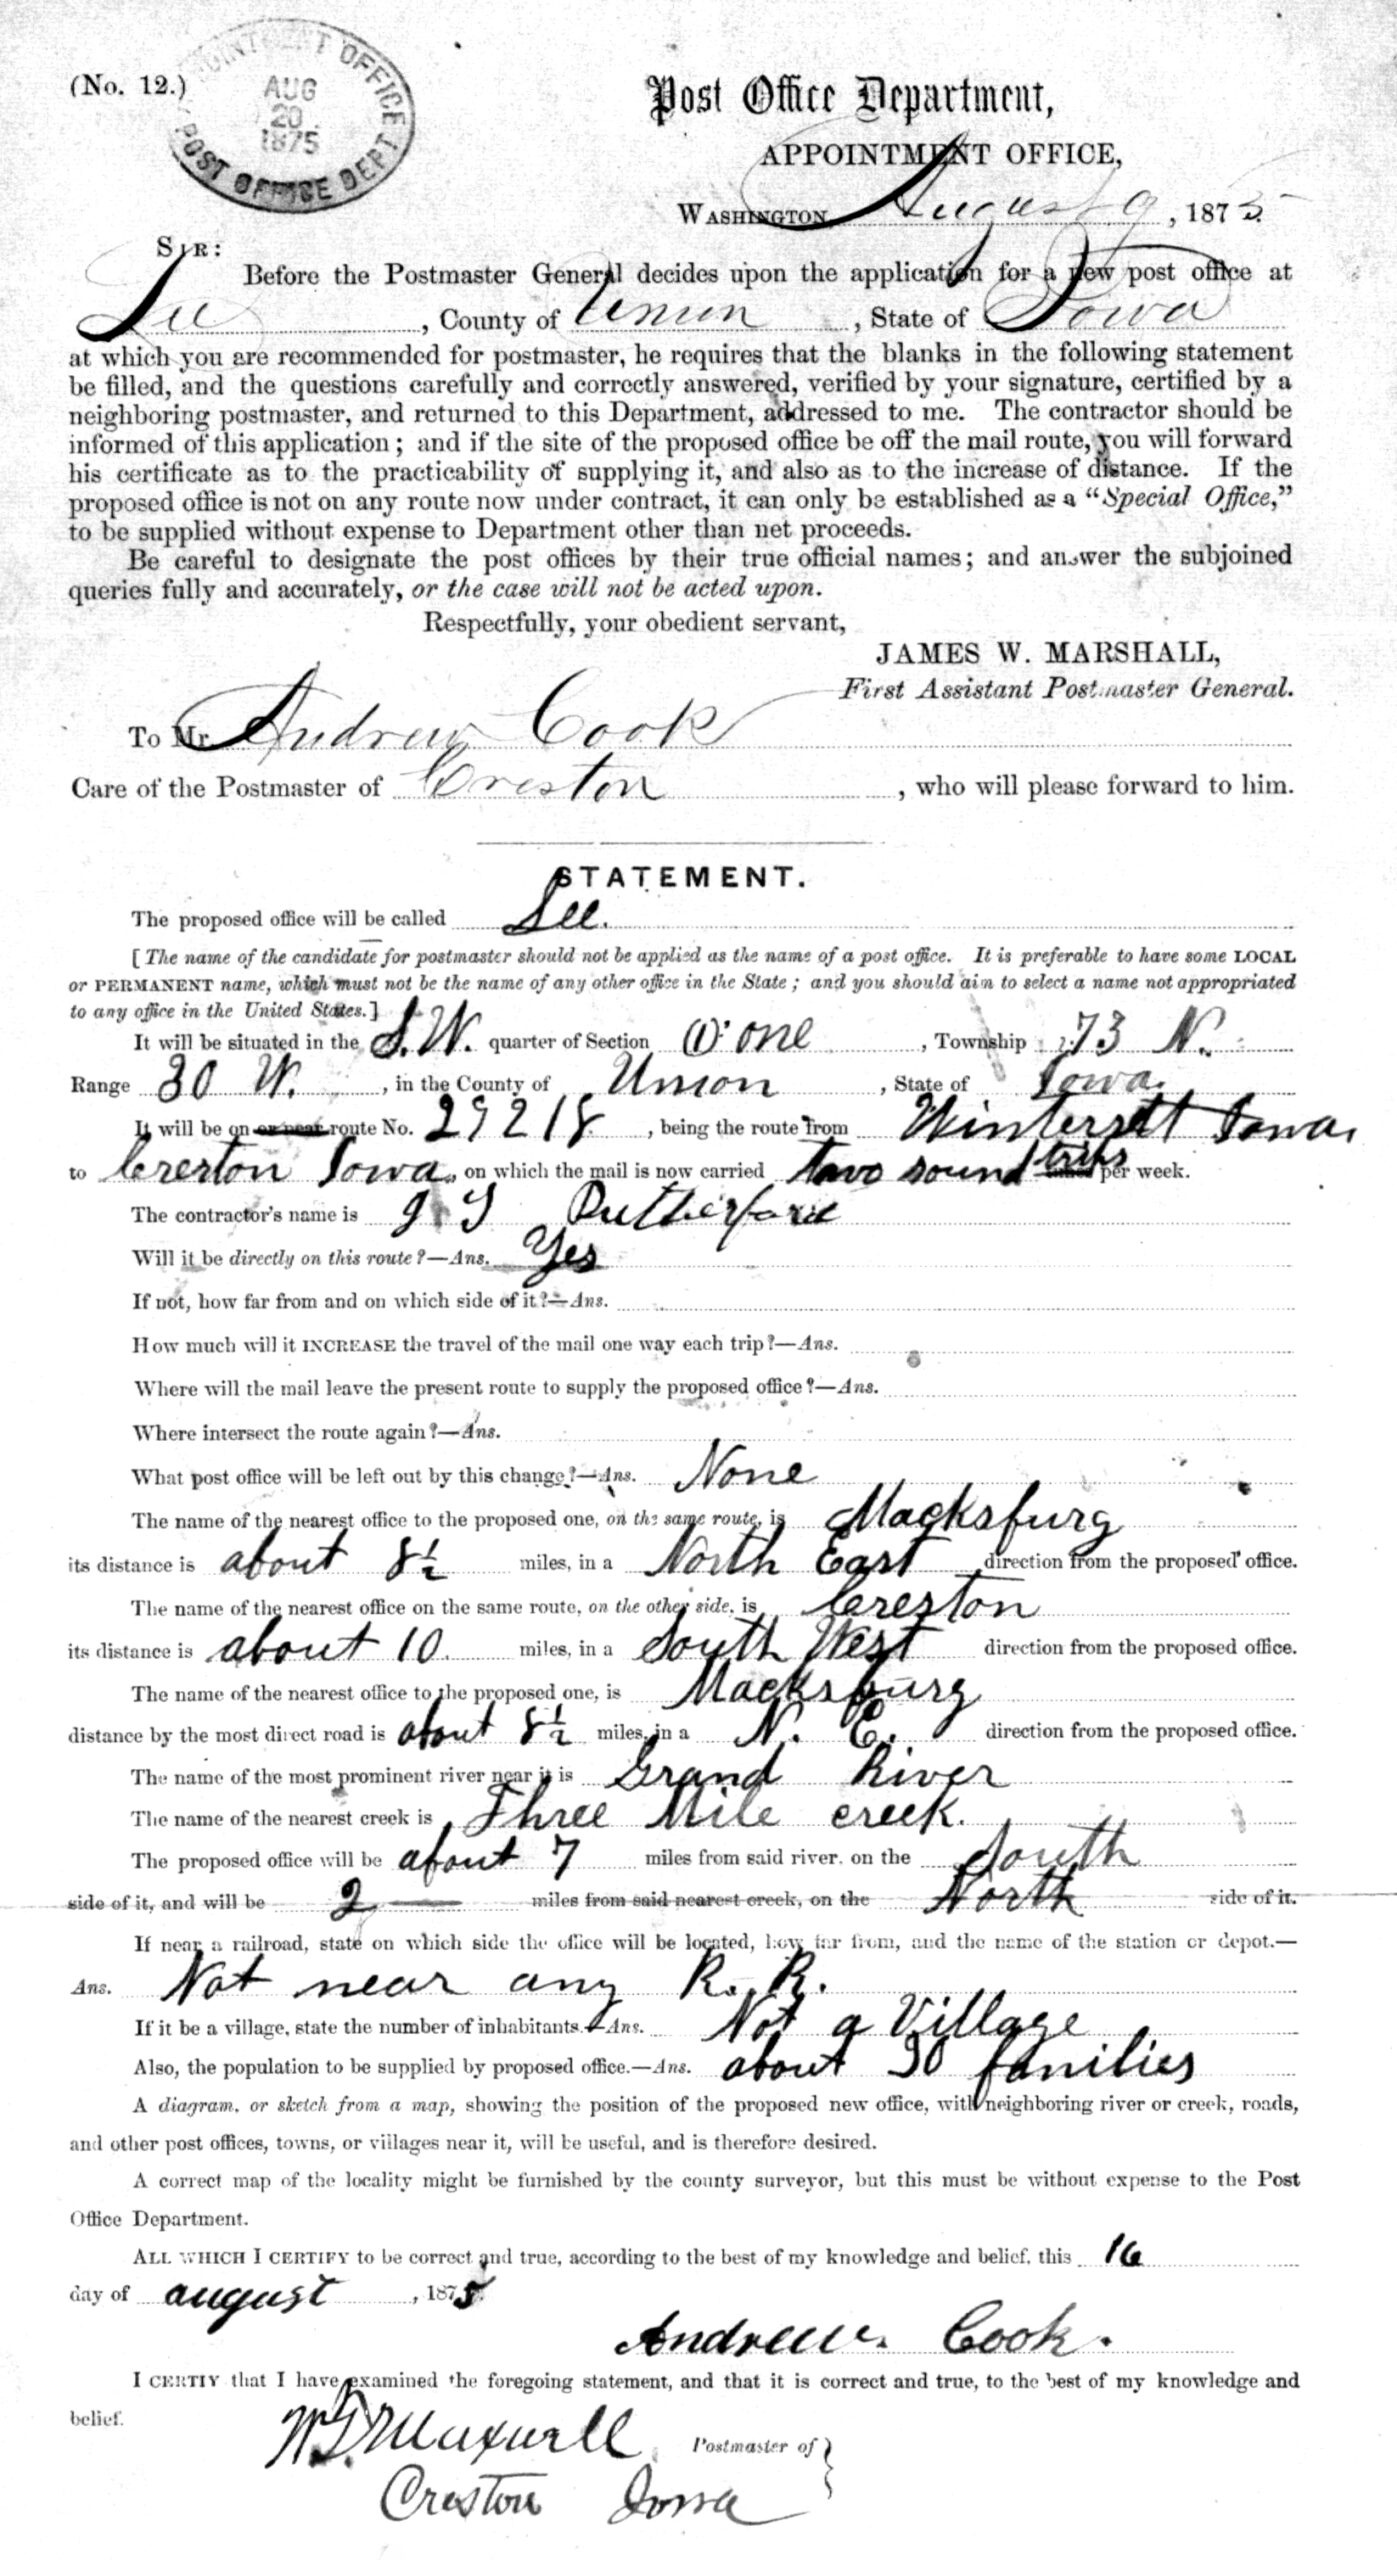 (No. 12.)
APPOINTMENT OFFICE
AUG
20
1875
POST OFFICE DEPT.
Post Office Department,
APPOINTMENT OFFICE,
WASHINGTON, August 9, 1875.
SIR:
Before the Postmaster General decides upon the application for a new post office at
Lee, County of Union, State of Iowa
at which you are recommended for postmaster, he requires that the blanks in the following statement
be filled, and the questions carefully and correctly answered, verified by your signature, certified by a
neighboring postmaster, and returned to this Department, addressed to me. The contractor should be
informed of this application; and if the site of the proposed office be off the mail route, you will forward
his certificate as to the practicability of supplying it, and also as to the increase of distance. If the
proposed office is not on any route now under contract, it can only be established as a "Special Office,"
to be supplied without expense to Department other than net proceeds.
Be careful to designate the post offices by their true official names; and answer the subjoined
queries fully and accurately, or the case will not be acted upon.
Respectfully, your obedient servant,
JAMES W. MARSHALL,
First Assistant Postmaster General.
To Mr. Andrew Cook
Care of the Postmaster of Creston, who will please forward to him.
STATEMENT.
The proposed office will be called Lee.
[The name of the candidate for postmaster should not be applied as the name of a post office. It is preferable to have some LOCAL
or PERMANENT name, which must not be the name of any other office in the State; and you should aim to select a name not appropriated
to any office in the United States.]
It will be situated in the S.W. quarter of Section (1) one, Township 73 N.
Range 30 W., in the County of Union, State of Iowa.
It will be on or near route No. 29218, being the route from Winterset Iowa
to Creston Iowa, on which the mail is now carried two round trips per week.
The contractor's name is Rutherford
Will it be directly on this route?—Ans. Yes
If not, how far from and on which side of it?—Ans.
How much will it INCREASE the travel of the mail one way each trip?—Ans.
Where will the mail leave the present route to supply the proposed office?—Ans.
Where intersect the route again?—Ans.
What post office will be left out by this change?—Ans. None
The name of the nearest office to the proposed one, on the same route, is Macksburg
its distance is about 8½ miles, in a North East direction from the proposed office.
The name of the nearest office on the same route, on the other side, is Creston
its distance is about 10 miles, in a South West direction from the proposed office.
The name of the nearest office to the proposed one, is Macksburg
distance by the most direct road is about 8½ miles, in a N. E. direction from the proposed office.
The name of the most prominent river near it is Grand River
The name of the nearest creek is Three Mile creek.
The proposed office will be about 7 miles from said river, on the South
side of it, and will be 2 miles from said nearest creek, on the North side of it.
If near a railroad, state on which side the office will be located, how far from, and the name of the station or depot.—
Ans. Not near any R. R.
If it be a village, state the number of inhabitants.—Ans. Not a Village
Also, the population to be supplied by proposed office.—Ans. about families
A diagram, or sketch from a map, showing the position of the proposed new office, with neighboring river or creek, roads,
and other post offices, towns, or villages near it, will be useful, and is therefore desired.
A correct map of the locality might be furnished by the county surveyor, but this must be without expense to the Post
Office Department.
ALL WHICH I CERTIFY to be correct and true, according to the best of my knowledge and belief, this 16
day of august, 1875.
Andrew Cook.
I CERTIY that I have examined the foregoing statement, and that it is correct and true, to the best of my knowledge and
belief.
Maxwell Postmaster of
Creston Iowa